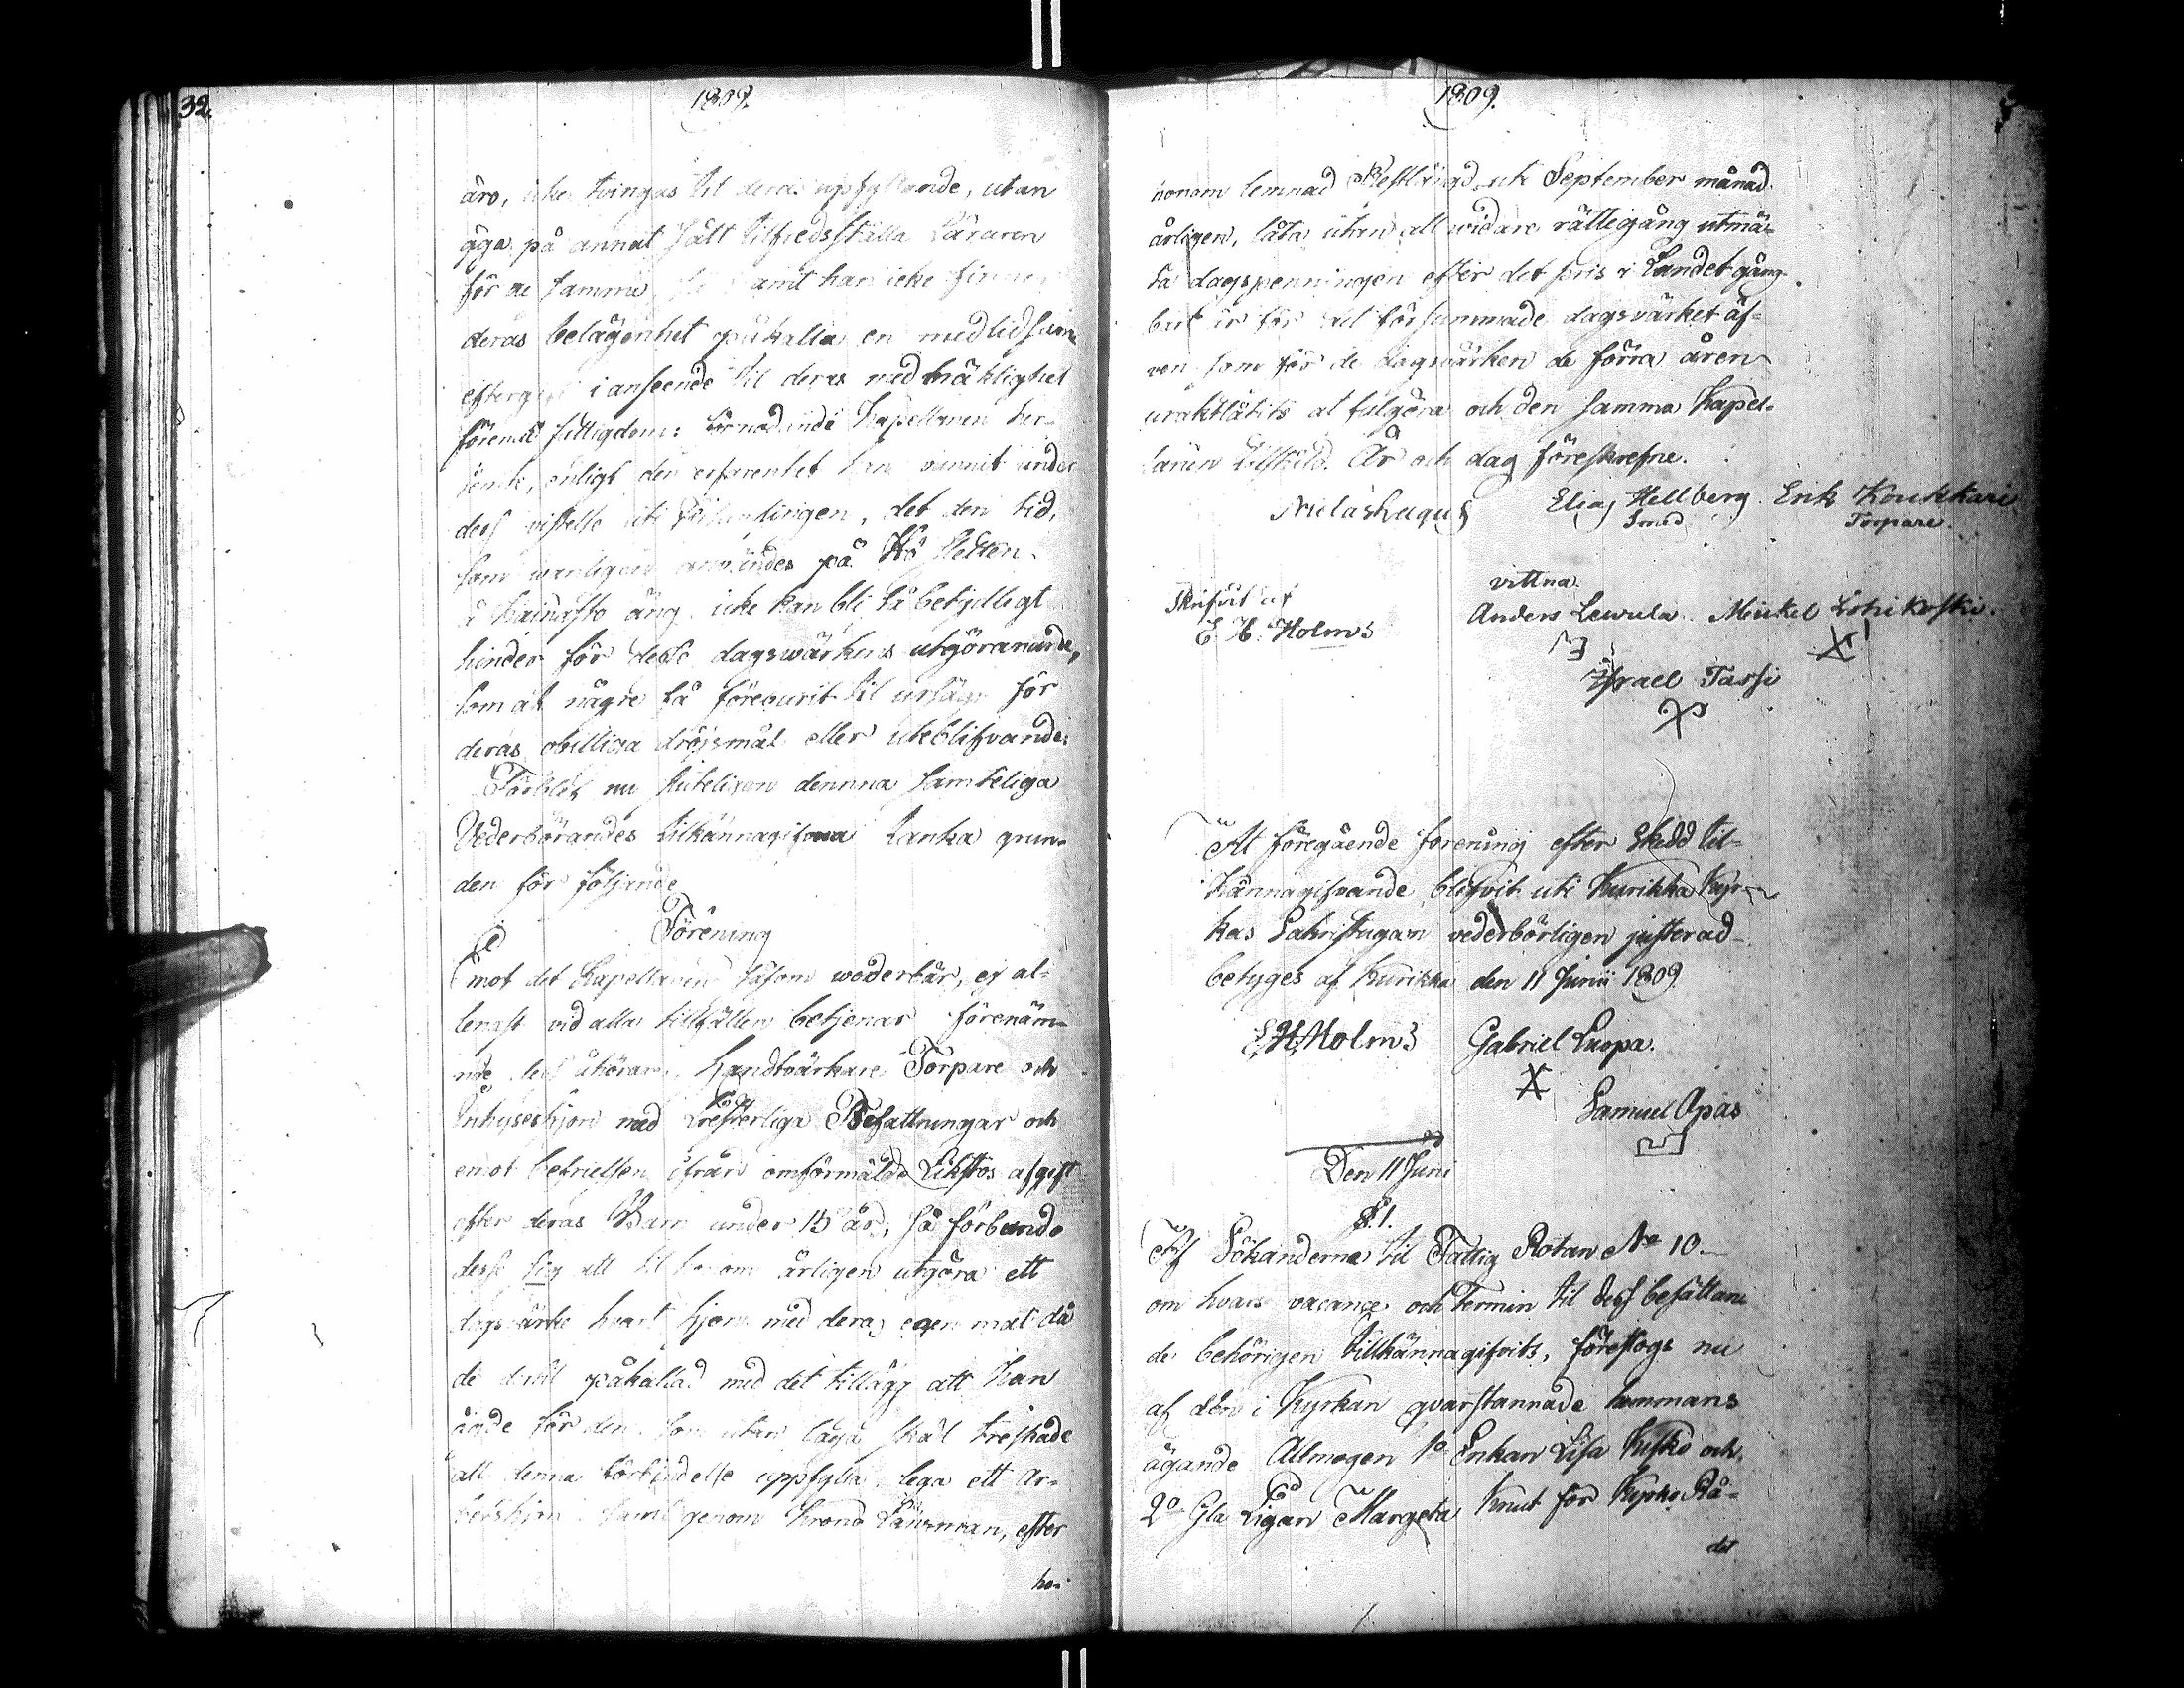 32.
1809.
äro, icke tvingas til deras upfyllande, utan
äga på annat sätt tilfredsställa Läraren
för de samma han icke finner
deras belägenhet påkalla en medlidsam
eftergift i anseende til deras med bräklighet
förente fattigdom: Kapellanen
enligt den erfarenhet han vunnit under
dess vistelse uti Församlingen, det den tid,
som wanligen användes på Hö
å äng icke kan bli så betydligt
hinder för desse dagswärkens utgörande,
som at någre få til ursägt för
deras obilliga dröjsmål eller uteblifvande:
Förblef nu denna samteliga
Vederbörandes tilkännagifna tanka grun-
den för följande
Förening
mot det Kapellanen såsom wederbör, ej al-
lenast vid alla tillfällen betjenar förenäm-
nde åhörare, Handtvärkare Torpare och
Inhyseshjon med Presterliga Befattningar och
emot befrielsen ifrån omförmälde Likstos afgift
efter deras Barn under 15 år, så förbinda
desse sig att til honom årligen utgöra ett
dagsvärke hvart hjon med deras egen mat då
de påkallad med det tillägg att Han
ägde för den som utan laga skäl treskade
att denna förbindelse uppfylla, lega ett Ar-
betshjon samt genom Krono Länsman, efter
ho-
1809.
honom lemnad Restlängd uti September månad
årligen, låta utan all widare rättegång utmä-
ta dagspenningen efter det pris i Landet gång-
bart är för det försummade dagsvärket äf-
ven som för de dagsvärken de förra åren
uraktlåtits at fulgöra och den samma Kapel-
lanen tilstäld. År och dag föreskrefne.
Elias Hellberg. Erik Koukkari
Smed Torpare.
vittna.
Skrifvit af
E. H. Holms
Anders Lewula. Mickel
Israel Tassi
At föregående förening efter skedd til-
kännagifvande blifvit uti Kurikka Kyr-
kas Sakristugan vederbörligen justerad
betyges af Kurikka den 11 Junii 1809.
E H Holms Gabriel Luopa.
Samuel Opas
Den 11 Juni
§. 1.
Af Sökanderne til Fattig Rotan No 10.
om hvars vacance och Termin til dess besättan-
de behörigen tillkännagifvits, föreslogs nu
af den i Kyrkan qvarstannade
ägande Allmogen 1o Enkan Lisa och
2o Gla Pigan Margeta Knut för Kyrko Rå-
det